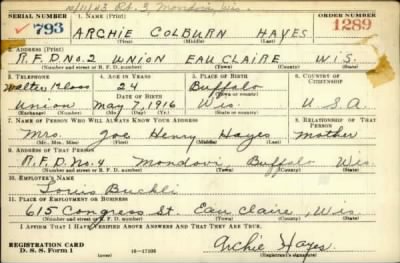 10/11/43 Rd. 3, Mondovi, Wis.
SERIAL NUMBER 1. NAME (Print) ORDER NUMBER
✓ 793 ARCHIE COLBURN HAYES 1289
(First) (Middle) (Last)
2. ADDRESS (Print)
R.F.D. No. 2 UNION EAU CLAIRE WIS.
(Number and street or R. F. D. number) (Town) (County) (State)
3. TELEPHONE 4. AGE IN YEARS 5. PLACE OF BIRTH 6. COUNTRY OF CITIZENSHIP
Walter 24 Buffalo
DATE OF BIRTH (Town or county)
Union May 7, 1916 Wis. U.S.A.
(Exchange) (Number) (Mo.) (Day) (Yr.) (State or country)
7. NAME OF PERSON WHO WILL ALWAYS KNOW YOUR ADDRESS 8. RELATIONSHIP OF THAT PERSON
Mrs. Joe Henry Hayes Mother
(Mr., Mrs., Miss) (First) (Middle) (Last)
9. ADDRESS OF THAT PERSON
R.F.D. No. 4 Mondovi Buffalo Wis.
(Number and street or R. F. D. number) (Town) (County) (State)
10. EMPLOYER'S NAME
Louis Buchli
11. PLACE OF EMPLOYMENT OR BUSINESS
615 Congress St. Eau Claire, Wis.
(Number and street or R. F. D. number) (Town) (County) (State)
I AFFIRM THAT I HAVE VERIFIED ABOVE ANSWERS AND THAT THEY ARE TRUE.
REGISTRATION CARD
D. S. S. Form 1 16-17105 Archie Hayes
(over) (Registrant's signature)